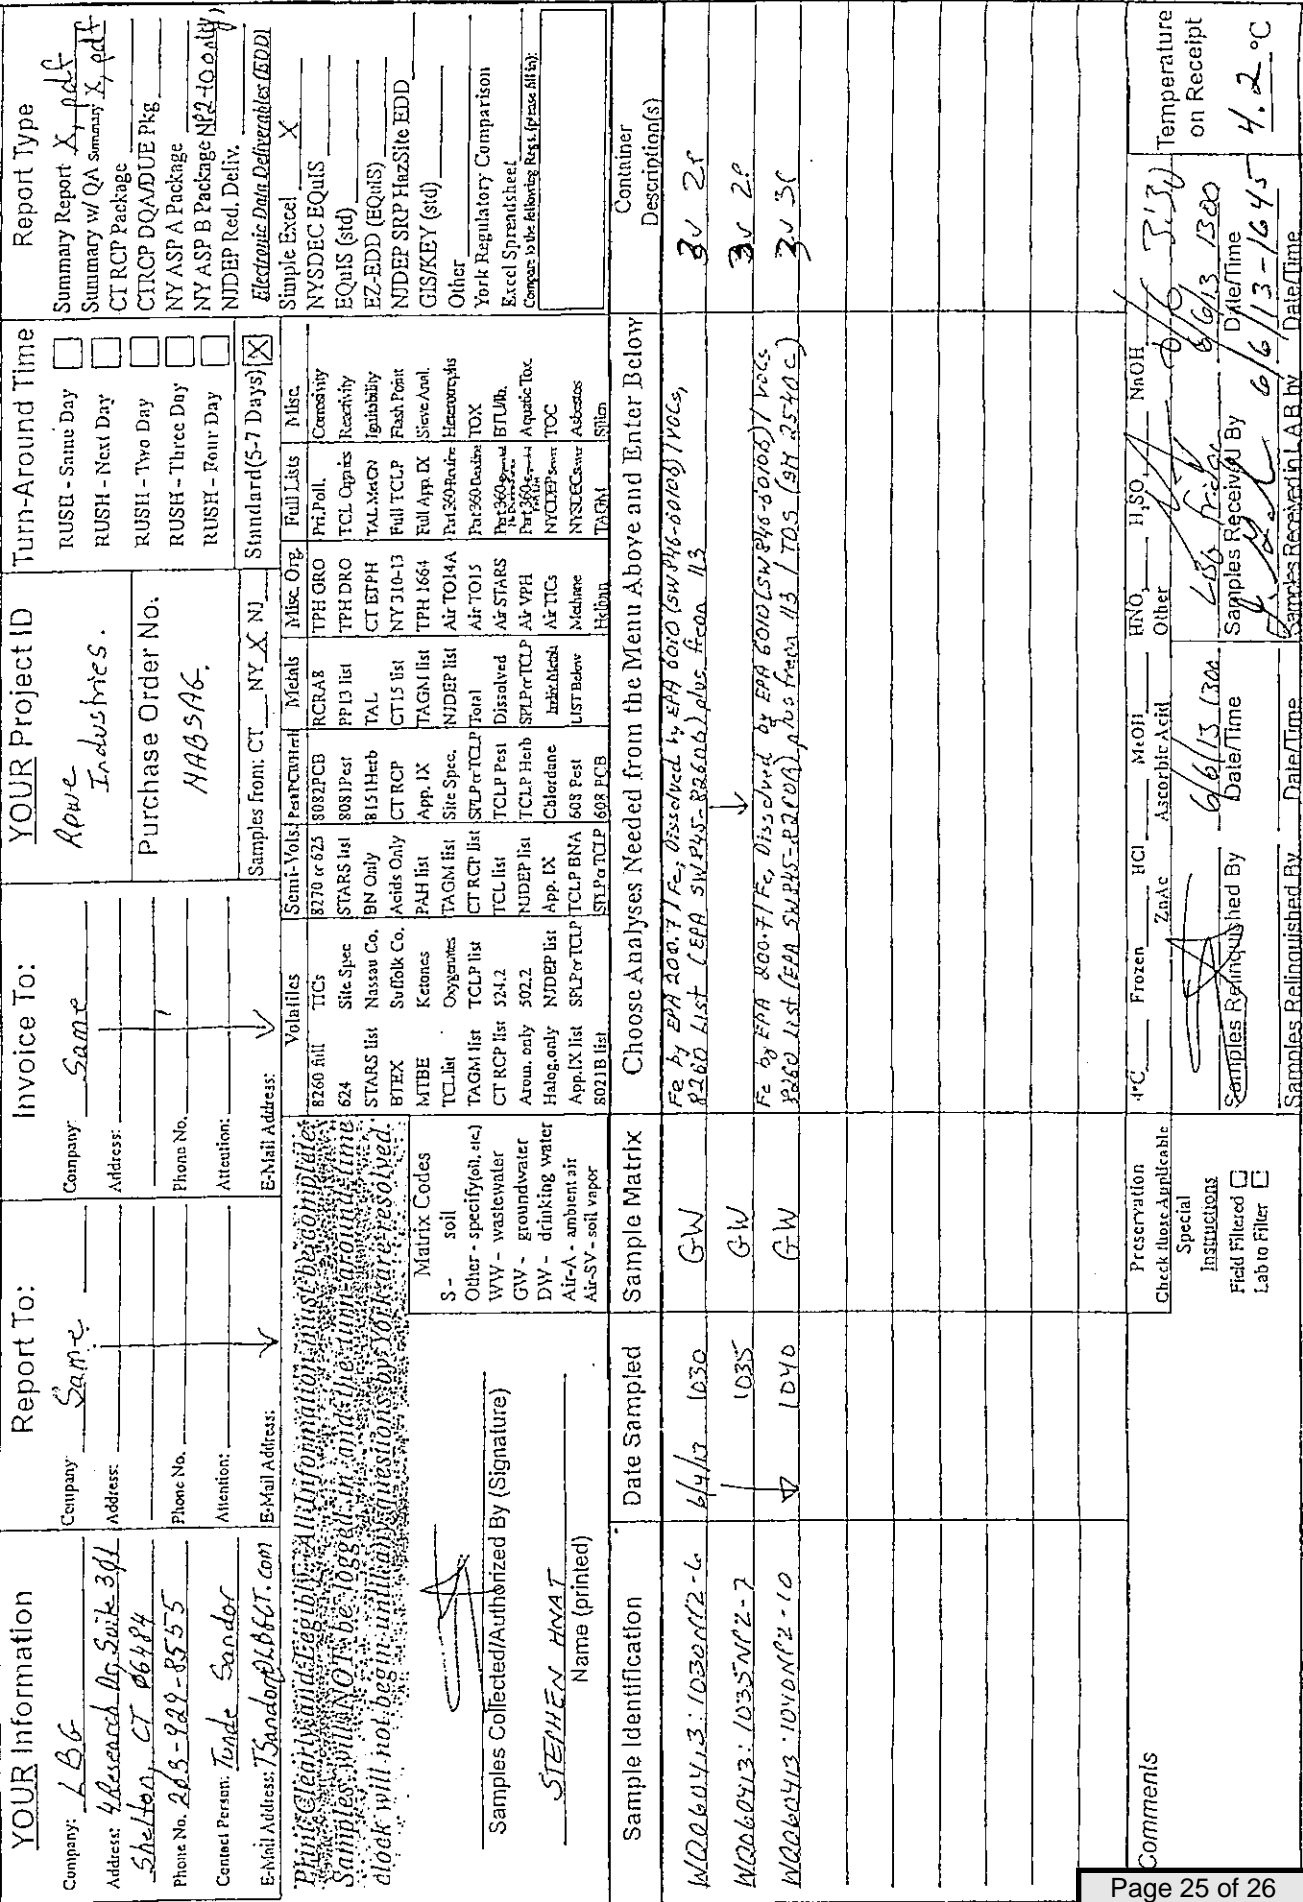 YOUR Information
Company: LBG
Address: 4 Research Dr, Suite 301
Shelton, CT 06484
Phone No. 203-929-8555
Contact Person: Tunde Sandor
E-Mail Address: TSandor@LBGCT.com
Report To:
Company: Same
Address:
Phone No.
Attention:
E-Mail Address:
Invoice To:
Company: Same
Address:
Phone No.
Attention:
E-Mail Address:
YOUR Project ID
Rowe
Industries.
Purchase Order No.
NABSAG.
Samples from: CT NY X NJ
Turn-Around Time
RUSH - Same Day
RUSH - Next Day
RUSH - Two Day
RUSH - Three Day
RUSH - Four Day
Standard(5-7 Days) X
Report Type
Summary Report X, pdf
Summary w/ QA Summary X, pdf
CT RCP Package
CTRCP DQA/DUE Pkg
NY ASP A Package
NY ASP B Package NP2-10 only,
NJDEP Red. Deliv.
Electronic Data Deliverables (EDD)
Simple Excel X
NYSDEC EQuIS
EQuIS (std)
EZ-EDD (EQuIS)
NJDEP SRP HazSite EDD
GIS/KEY (std)
Other
York Regulatory Comparison
Excel Spreadsheet
Compare to the following Regs. (please fill in):
Print Clearly and Legibly. All Information must be complete.
Samples will NOT be logged in and the turn-around time
clock will not begin until any questions by York are resolved.
Samples Collected/Authorized By (Signature)
STEPHEN HNAT
Name (printed)
Matrix Codes
S - soil
Other - specify(oil, etc.)
WW - wastewater
GW - groundwater
DW - drinking water
Air-A - ambient air
Air-SV - soil vapor
Volatiles
8260 full TICs
624 Site Spec
STARS list Nassau Co.
BTEX Suffolk Co.
MTBE Ketones
TCL list Oxygenates
TAGM list TCLP list
CT RCP list 524.2
Arom. only 502.2
Halog. only NJDEP list
App.IX list SPLP or TCLP
8021B list
Semi-Vols.
8270 or 625
STARS list
BN Only
Acids Only
PAH list
TAGM list
CT RCP list
TCL list
NJDEP list
App. IX
TCLP BNA
SPLP or TCLP
Pest/PCB/Herb
8082PCB
8081Pest
8151Herb
CT RCP
App. IX
Site Spec.
SPLP or TCLP
TCLP Pest
TCLP Herb
Chlordane
608 Pest
608 PCB
Metals
RCRA8
PP13 list
TAL
CT15 list
TAGM list
NJDEP list
Total
Dissolved
SPLP or TCLP
Indiv. Metals
LIST Below
Misc. Org.
TPH GRO
TPH DRO
CT ETPH
NY 310-13
TPH 1664
Air TO14A
Air TO15
Air STARS
Air VPH
Air TICs
Methane
Helium
Full Lists
Pri.Poll.
TCL Organics
TAL MetCN
Full TCLP
Full App. IX
Part 360-Routine
Part 360-Baseline
NYCDEP Sewer
NYSDEC Sewer
TAGM
Misc.
Corrosivity
Reactivity
Ignitability
Flash Point
Sieve Anal.
Heterotrophs
TOX
BTU/lb.
Aquatic Tox.
TOC
Asbestos
Silica
Sample Identification
Date Sampled
Sample Matrix
Choose Analyses Needed from the Menu Above and Enter Below
Container
Description(s)
WQ060413:1030NP2-6 6/4/13 1030 GW Fe by EPA 200.7 / Fe, Dissolved by EPA 6010 (SW846-6010B) / VOCs,
8260 List (EPA SW845-8260B) plus freon 113 3V 2P
WQ060413:1035NP2-7 1035 GW 3V 2P
WQ060413:1040NP2-10 1040 GW Fe by EPA 200.7 / Fe, Dissolved by EPA 6010 (SW846-6010B) / VOCs
8260 List (EPA SW845-8260B) plus freon 113 / TDS (SM 2540C) 3V 3P
Comments
Preservation
Check those Applicable
Special
Instructions
Field Filtered
Lab to Filter
4°C Frozen HCl MeOH HNO3 H2SO4 NaOH
ZnAc Ascorbic Acid Other
6/6/13 1300
Samples Relinquished By Date/Time
LBG fridge 6/6/13 1300
Samples Received By Date/Time
Samples Relinquished By Date/Time
6/6/13-1645
Samples Received in LAB by Date/Time
Temperature
on Receipt
4.2 °C
Page 25 of 26